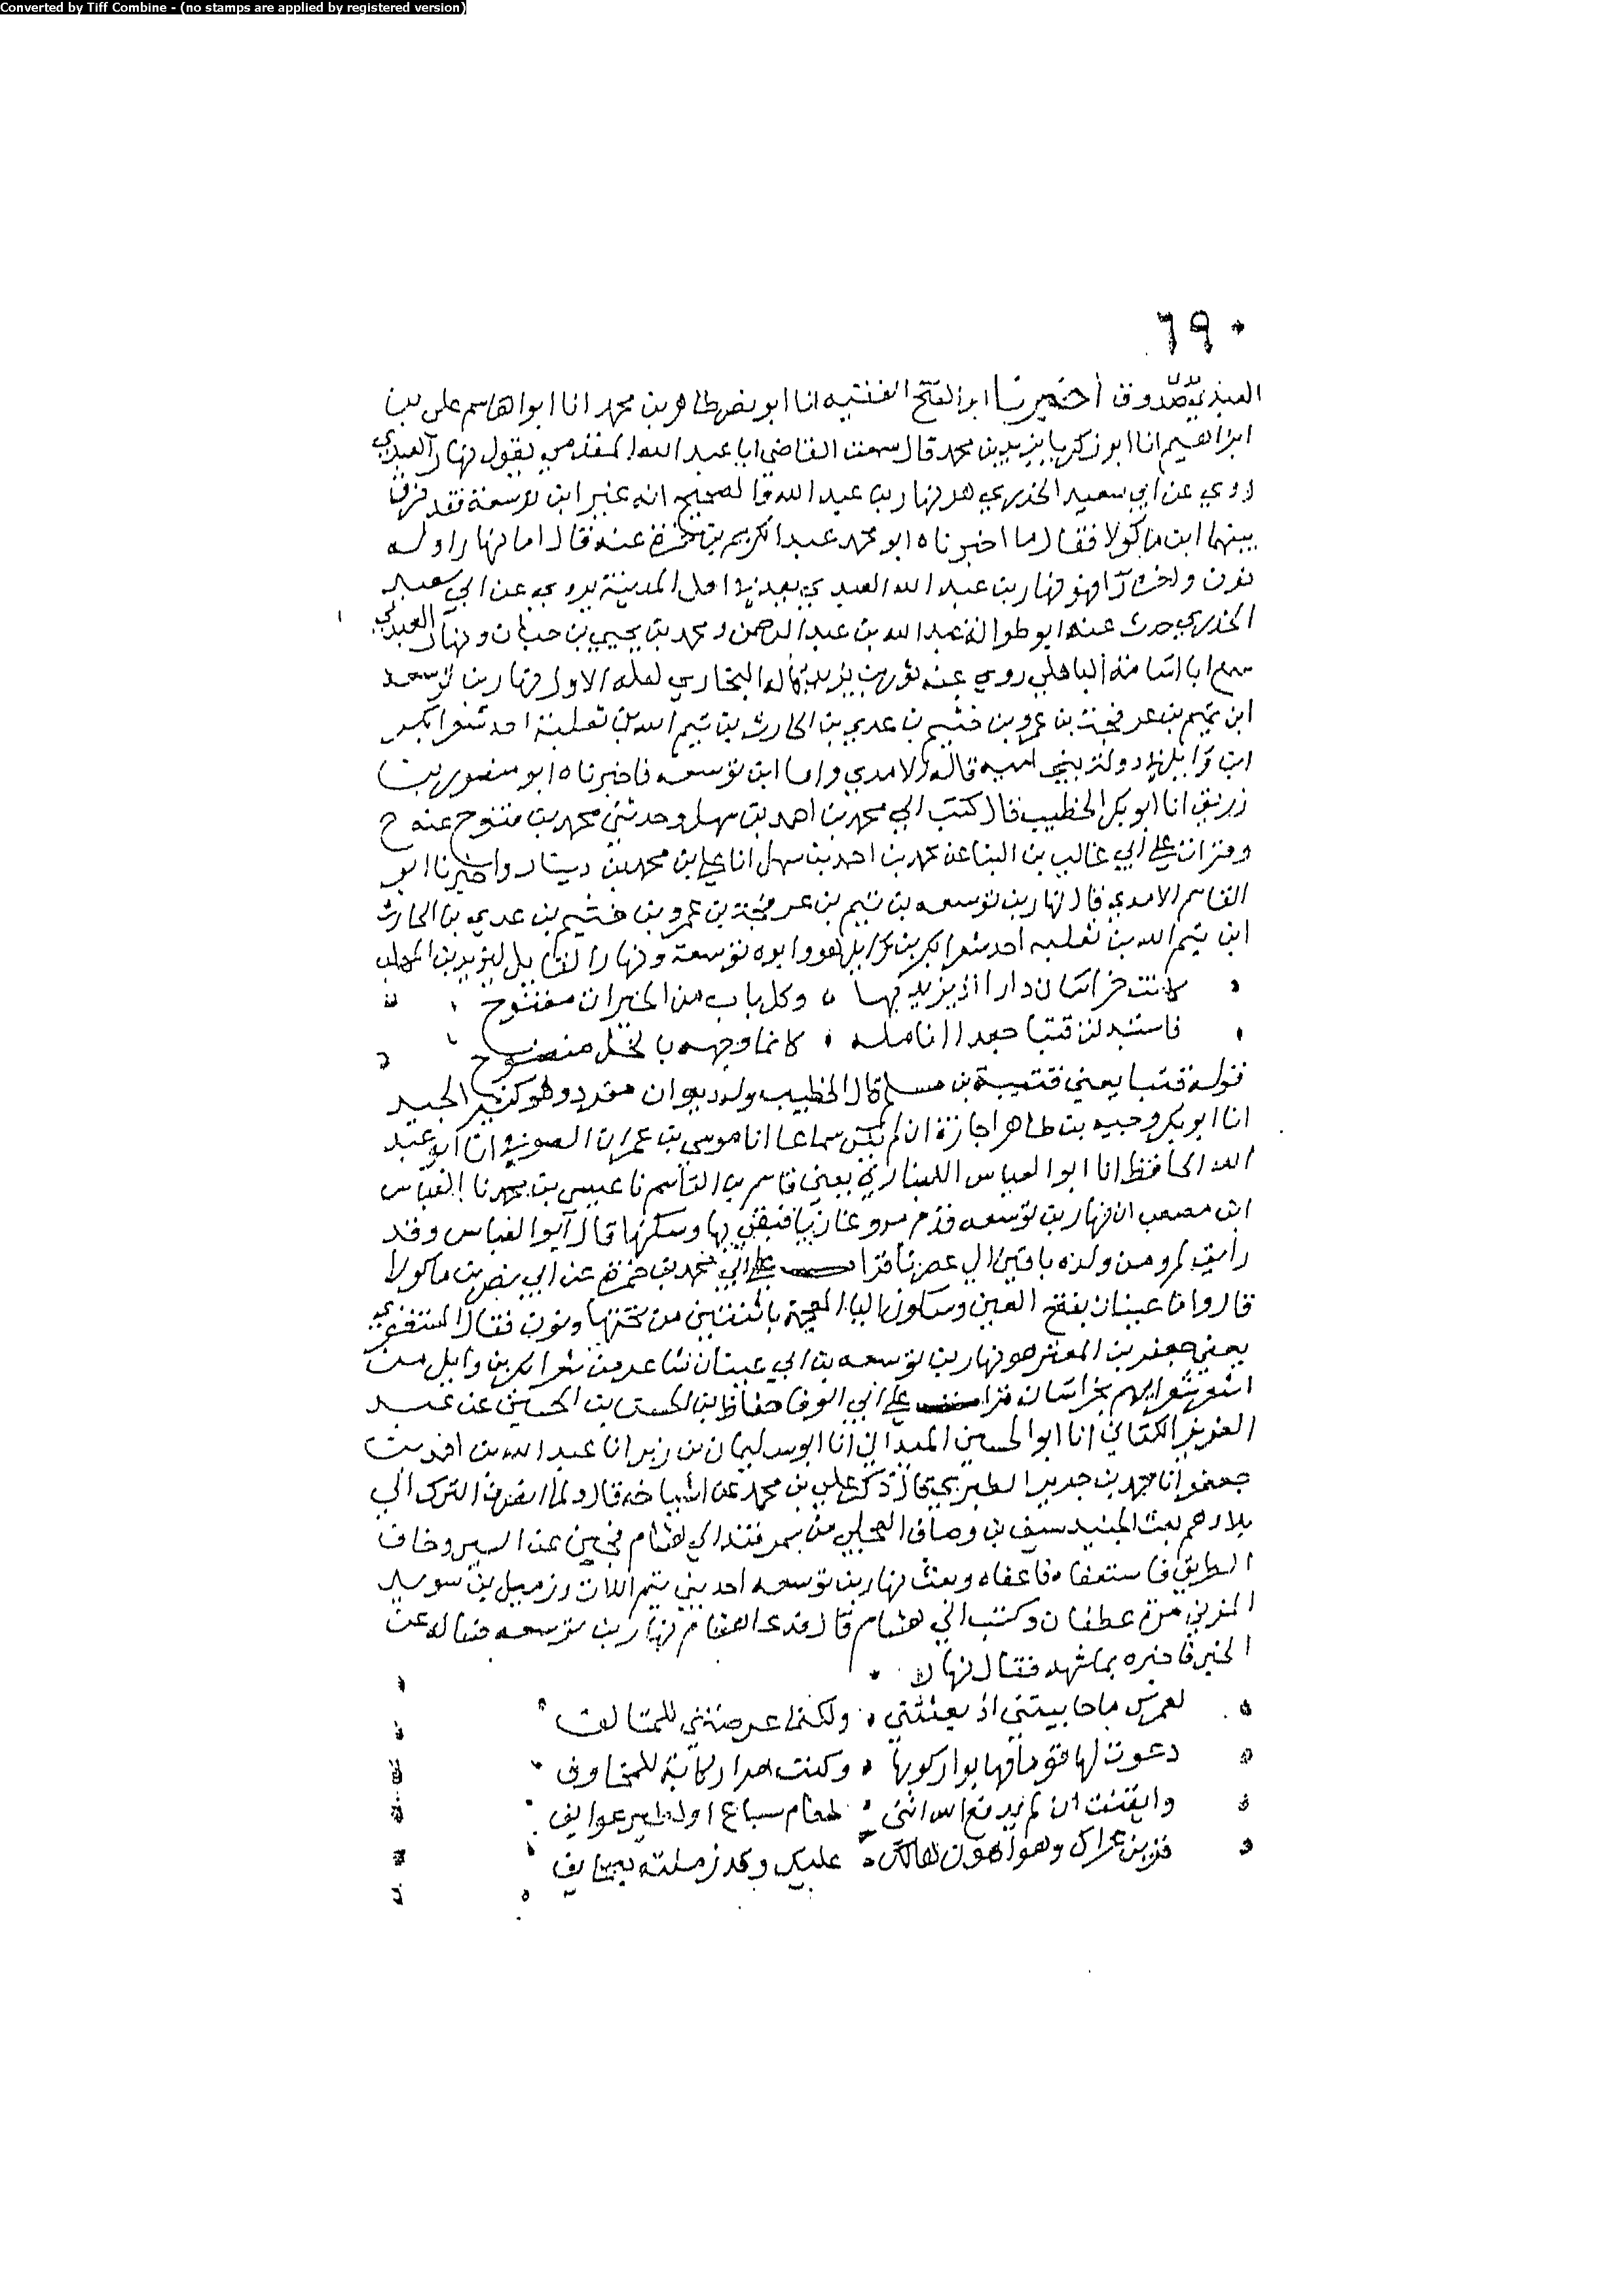 Converted by Tiff Combine - (no stamps are applied by registered version)
٦٩٠
العبدي صدوق أخبرنا ابو الفتح الفقيه انا ابو نصر طاهر بن محمد انا ابوا هاسم على بن
ابراهيم انا ابو زكريا يزيد بن محمد قال سمعت القاضي ابا عبد الله المقدمي يقول نهار العبدي
روي عن ابي سعيد الخدري هو نهار بن عبد الله قا لصحيح انه غير ابن توسعة فقد فرق
بينهما ابن ماكولا فقال ما اخبرناه ابو محمد عبد الكريم بن حمزة عنه قال اما نهار اوله
نون واخره را فهو نهار بن عبد الله العبدي يعد في اهل المدينة يروي عن ابي سعيد
الخدري حدث عنه ابو طوالة عبد الله بن عبد الرحمن ومحمد بن يحيي بن حبان ونهار العبدي
سمع ابا امامة الباهلي روي عنه ثور بن يزيد قاله البخاري لعله الاول نهار بن توسعه
ابن تميم بن عرفجة بن عمرو بن خثيم بن عدي بن الحارث بن تيم الله بن ثعلبة احد شعرا بكر
ابن وايل في دولة بني اميه قاله الامدي واما ابن توسعه فاخبرناه ابو منصور بن
زريق انا ابو بكر الخطيب قال كتب الي محمد بن احمد بن سهل وحدثني محمد بن فتوح عنه ح
وقرات علي ابي غالب بن البنا عن محمد بن احمد بن سهل انا علي بن محمد بن دينار واخبرنا ابو
القاسم الامدي قال نهار بن توسعه بن تيم بن عرفجة بن عمرو بن خثيم بن عدي بن الحارث
ابن تيم الله بن ثعلبه احد شعرا بكر بن وايل هو وابوه توسعة ونهار القايل ليزيد بن المهلب
كانت خراسان دارا اذ يزيد بها وكل باب من الخيرات مفتوح
فاستبدلت قتبا جعدا انامله كانما وجهه بالخل منضوح
قوله قتبا يعني قتيبة بن مسلم قال الخطيب وله ديوان مفرد وهو كثير الجيد
انا ابو بكر وجيه بن طاهر اجازة ان لم يكن سماعا انا موسي بن عمران الصوفي انا ابو عبد
الله الحافظ انا ابو العباس السياري يعني قاسم بن القاسم نا عيسي بن محمد نا العباس
ابن مصعب ان نهار بن توسعه قدم مرو غازيا فبقي بها وسكنها قال ابو العباس وقد
رايت لمرو من ولده باقين الي عصرنا قرات علي ابي محمد بن حمزة عن ابي نصر بن ماكولا
قال واما عينان بفتح العين وسكون اليا المعجمة باثنتين من تحتها ونون فقال المستغفري
يعني جعفر بن المعتز هو نهار بن توسعه بن ابي عينان شاعر من شعرا بكر بن وايل من
اشعر شعرايهم بخراسان قرات علي ابي الوفا حفاظ بن الحسن بن الحسين عن عبد
العزيز الكتاني انا ابو الحسين الميداني انا ابو سليمان بن زبر انا عبد الله بن احمد بن
جعفر انا محمد بن جرير الطبري قال ذكر علي بن محمد عن اشياخه قال ولما انصرف الترك الي
بلادهم بعث الجنيد سيف بن وصاف العجلي من سمرقند الي هشام فجبن عن السير وخاف
الطريق فاستعفاه فاعفاه وبعث نهار بن توسعه احد بني تيم اللات وزميل بن سويد
المزني مرة غطفان وكتب الي هشام قال فدعا هشام نهار بن توسعه فساله عن
الخبر فاخبره بما شهد فقال نهار
لعمرك ما حابيتني اذ بعثتني ولكنما عرضتني للمتالف
دعوت لها قوما فهابوا ركوبها وكنت امرا ركابة للمخاوف
وايقنت ان لم يدفع الله انني طعام سباع او لطير عوايف
قرين عراك وهو اهون هالك عليك وقد زملته بصحايف